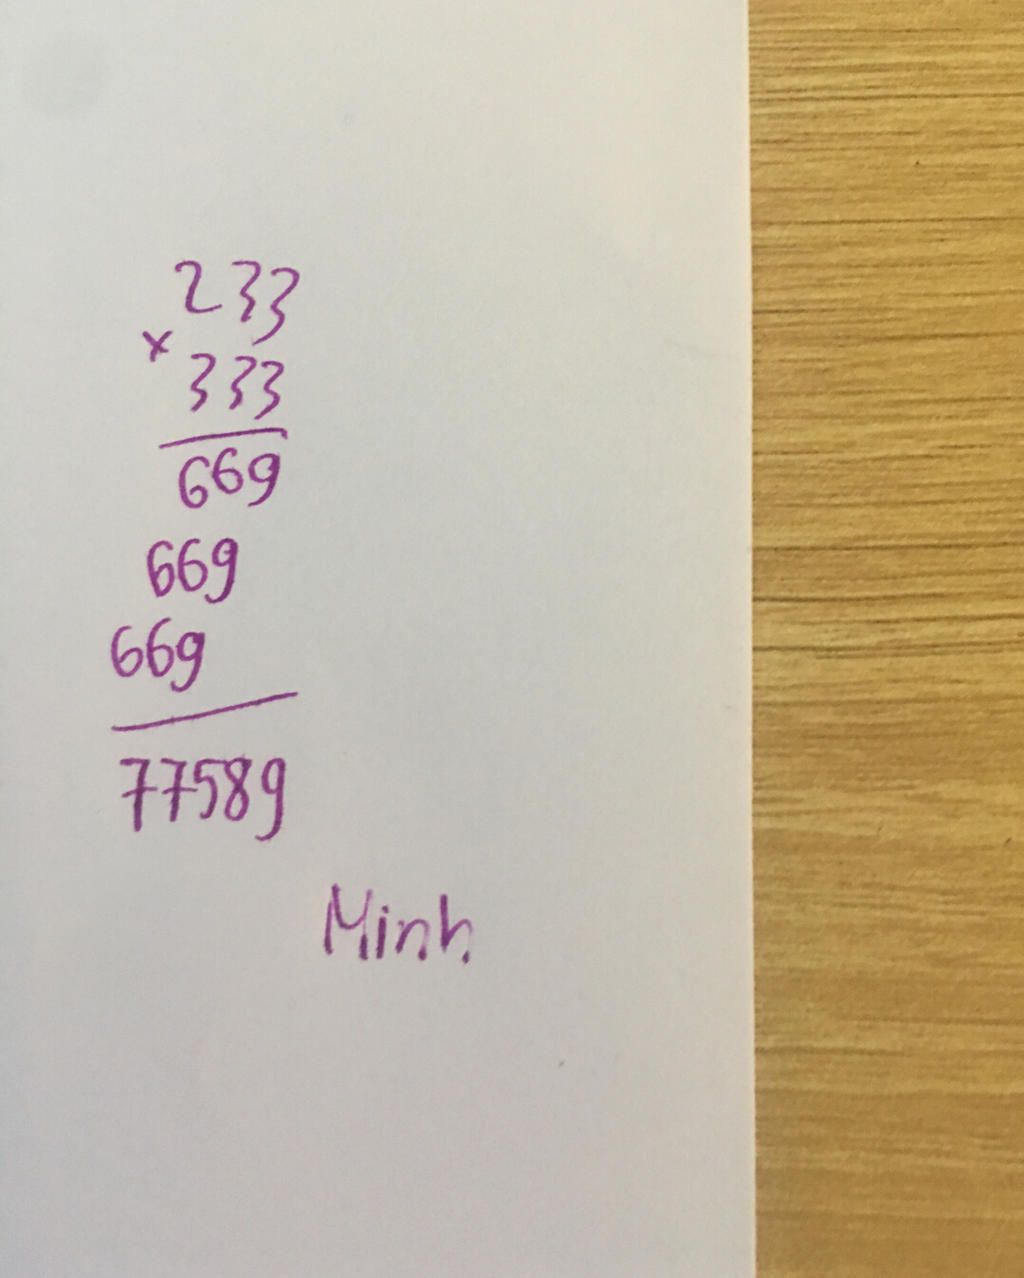 233
×
333
669
669
669
77589
Minh